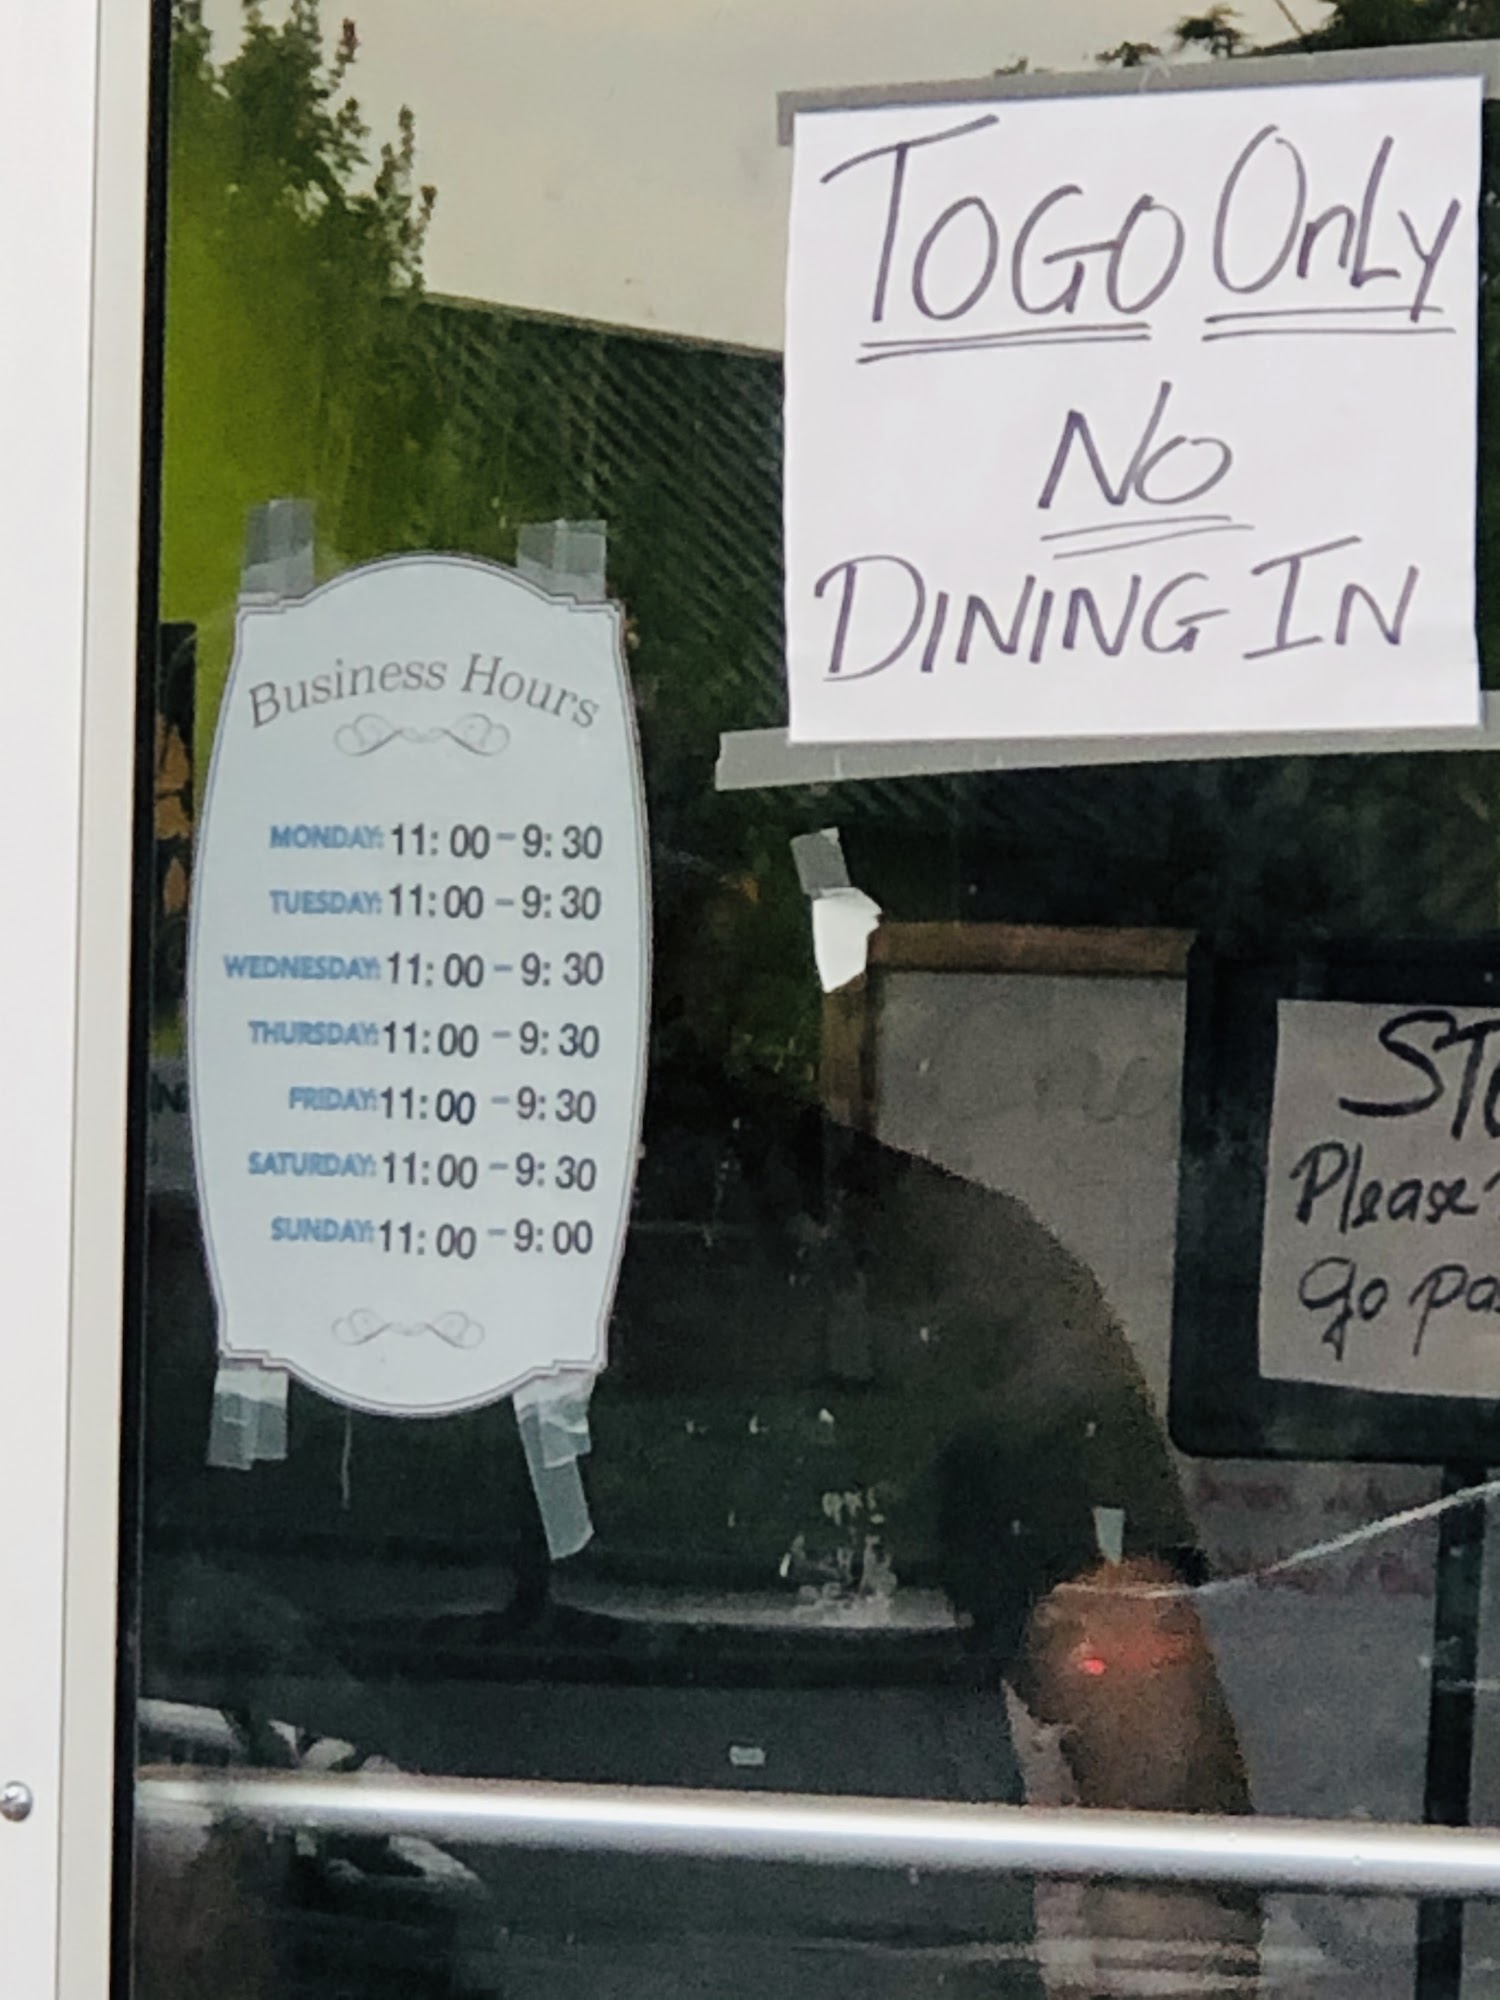 TOGO OnLy
NO
DINING IN
Business Hours
MONDAY: 11:00-9:30
TUESDAY: 11:00-9:30
WEDNESDAY: 11:00-9:30
THURSDAY: 11:00-9:30
FRIDAY: 11:00-9:30
SATURDAY: 11:00-9:30
SUNDAY: 11:00-9:00
Please
Go